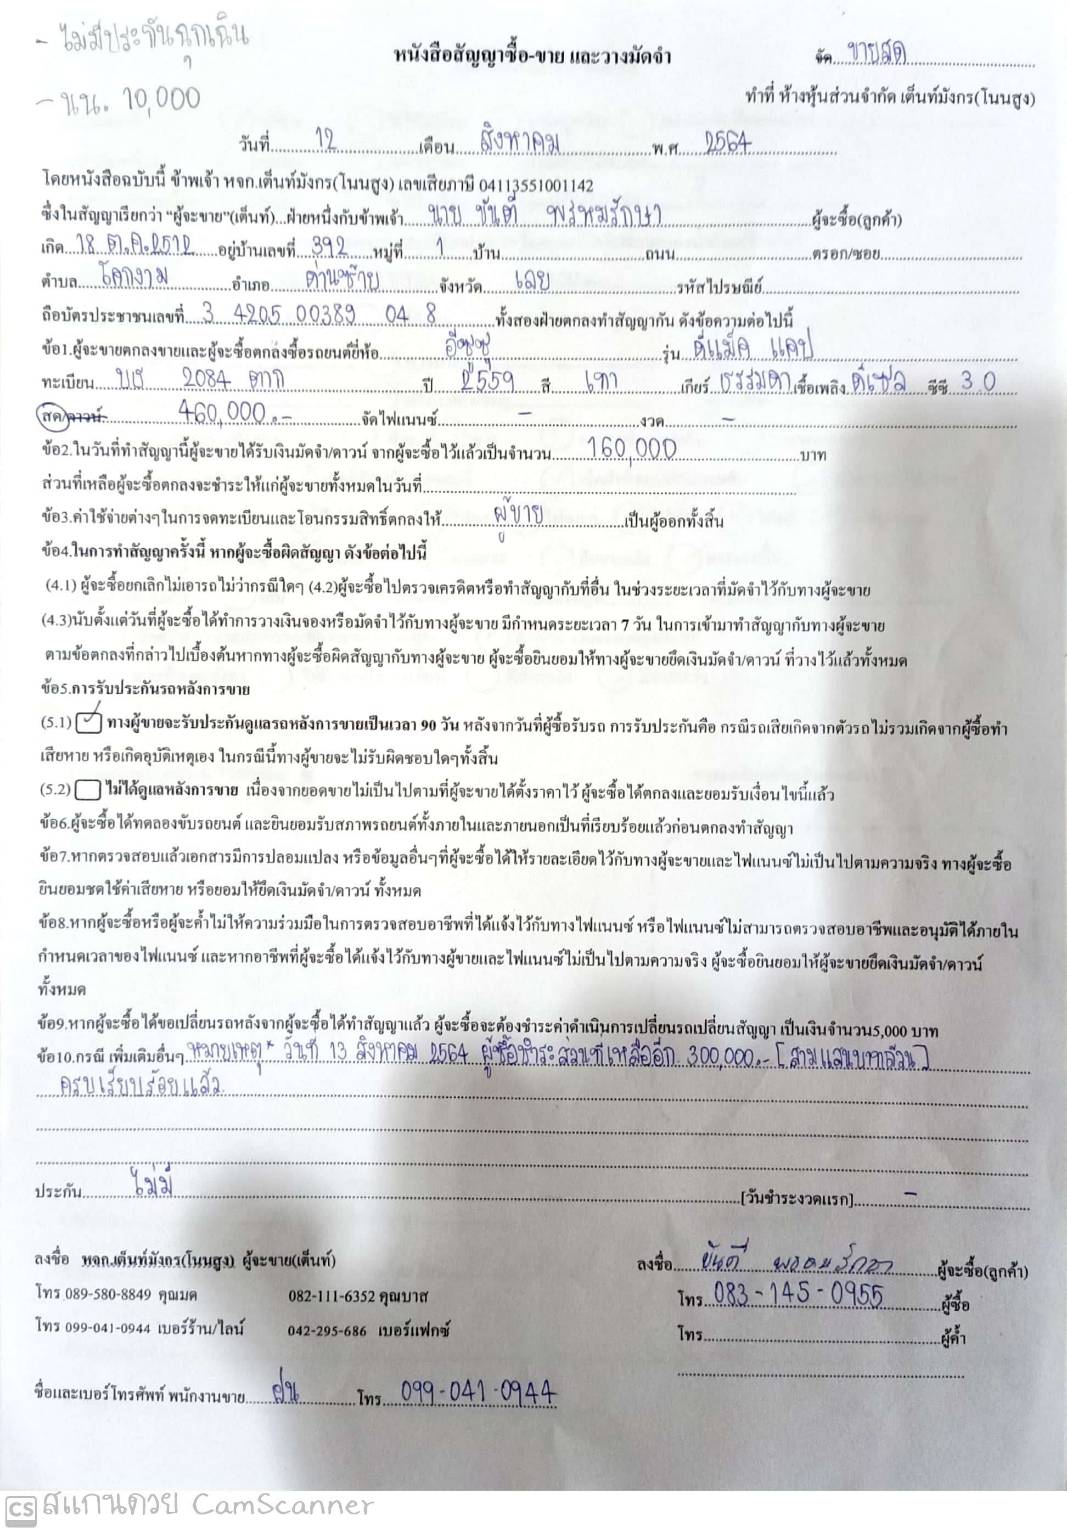 - ไม่มีประกันฉุกเฉิน
- นน. 10,000
หนังสือสัญญาซื้อ-ขาย และวางมัดจำ
จัด ขายสด
ทำที่ ห้างหุ้นส่วนจำกัด เต็นท์มังกร(โนนสูง)
วันที่ 12 เดือน สิงหาคม พ.ศ 2564
โดยหนังสือฉบับนี้ ข้าพเจ้า หจก.เต็นท์มังกร(โนนสูง) เลขเสียภาษี 04113551001142
ซึ่งในสัญญาเรียกว่า “ผู้จะขาย”(เต็นท์)...ฝ่ายหนึ่งกับข้าพเจ้า นาย ขันตี พรหมรักษา ผู้จะซื้อ(ลูกค้า)
เกิด 18 ต.ค.2512 อยู่บ้านเลขที่ 392 หมู่ที่ 1 บ้าน ถนน ตรอก/ซอย
ตำบล โคกงาม อำเภอ ด่านซ้าย จังหวัด เลย รหัสไปรษณีย์
ถือบัตรประชาชนเลขที่ 3 4205 00389 04 8 ทั้งสองฝ่ายตกลงทำสัญญากัน ดังข้อความต่อไปนี้
ข้อ1.ผู้จะขายตกลงขายและผู้จะซื้อตกลงซื้อรถยนต์ยี่ห้อ อีซูซุ รุ่น ดีแม็ค แคป
ทะเบียน บร 2084 ตาก ปี 2559 สี เทา เกียร์ ธรรมดา เชื้อเพลิง ดีเซล ซีซี 3.0
สด/ดาวน์ 460,000.- จัดไฟแนนซ์ - งวด -
ข้อ2.ในวันที่ทำสัญญานี้ผู้จะขายได้รับเงินมัดจำ/ดาวน์ จากผู้จะซื้อไว้แล้วเป็นจำนวน 160,000 บาท
ส่วนที่เหลือผู้จะซื้อตกลงจะชำระให้แก่ผู้จะขายทั้งหมดในวันที่
ข้อ3.ค่าใช้จ่ายต่างๆในการจดทะเบียนและโอนกรรมสิทธิ์ตกลงให้ ผู้ขาย เป็นผู้ออกทั้งสิ้น
ข้อ4.ในการทำสัญญาครั้งนี้ หากผู้จะซื้อผิดสัญญา ดังข้อต่อไปนี้
(4.1) ผู้จะซื้อยกเลิกไม่เอารถไม่ว่ากรณีใดๆ (4.2)ผู้จะซื้อไปตรวจเครดิตหรือทำสัญญากับที่อื่น ในช่วงระยะเวลาที่มัดจำไว้กับทางผู้จะขาย
(4.3)นับตั้งแต่วันที่ผู้จะซื้อได้ทำการวางเงินจองหรือมัดจำไว้กับทางผู้จะขาย มีกำหนดระยะเวลา 7 วัน ในการเข้ามาทำสัญญากับทางผู้จะขาย
ตามข้อตกลงที่กล่าวไปเบื้องต้นหากทางผู้จะซื้อผิดสัญญากับทางผู้จะขาย ผู้จะซื้อยินยอมให้ทางผู้จะขายยึดเงินมัดจำ/ดาวน์ ที่วางไว้แล้วทั้งหมด
ข้อ5.การรับประกันรถหลังการขาย
(5.1) ✓ ทางผู้ขายจะรับประกันดูแลรถหลังการขายเป็นเวลา 90 วัน หลังจากวันที่ผู้ซื้อรับรถ การรับประกันคือ กรณีรถเสียเกิดจากตัวรถไม่รวมเกิดจากผู้ซื้อทำ
เสียหาย หรือเกิดอุบัติเหตุเอง ในกรณีนี้ทางผู้ขายจะไม่รับผิดชอบใดๆทั้งสิ้น
(5.2) ไม่ได้ดูแลหลังการขาย เนื่องจากยอดขายไม่เป็นไปตามที่ผู้จะขายได้ตั้งราคาไว้ ผู้จะซื้อได้ตกลงและยอมรับเงื่อนไขนี้แล้ว
ข้อ6.ผู้จะซื้อได้ทดลองขับรถยนต์ และยินยอมรับสภาพรถยนต์ทั้งภายในและภายนอกเป็นที่เรียบร้อยแล้วก่อนตกลงทำสัญญา
ข้อ7.หากตรวจสอบแล้วเอกสารมีการปลอมแปลง หรือข้อมูลอื่นๆที่ผู้จะซื้อได้ให้รายละเอียดไว้กับทางผู้จะขายและไฟแนนซ์ไม่เป็นไปตามความจริง ทางผู้จะซื้อ
ยินยอมชดใช้ค่าเสียหาย หรือยอมให้ยึดเงินมัดจำ/ดาวน์ ทั้งหมด
ข้อ8.หากผู้จะซื้อหรือผู้จะค้ำไม่ให้ความร่วมมือในการตรวจสอบอาชีพที่ได้แจ้งไว้กับทางไฟแนนซ์ หรือไฟแนนซ์ไม่สามารถตรวจสอบอาชีพและอนุมัติได้ภายใน
กำหนดเวลาของไฟแนนซ์ และหากอาชีพที่ผู้จะซื้อได้แจ้งไว้กับทางผู้ขายและไฟแนนซ์ไม่เป็นไปตามความจริง ผู้จะซื้อยินยอมให้ผู้จะขายยึดเงินมัดจำ/ดาวน์
ทั้งหมด
ข้อ9.หากผู้จะซื้อได้ขอเปลี่ยนรถหลังจากผู้จะซื้อได้ทำสัญญาแล้ว ผู้จะซื้อจะต้องชำระค่าดำเนินการเปลี่ยนรถเปลี่ยนสัญญา เป็นเงินจำนวน5,000 บาท
ข้อ10.กรณี เพิ่มเติมอื่นๆ หมายเหตุ* วันที่ 13 สิงหาคม 2564 ผู้ซื้อชำระส่วนที่เหลืออีก 300,000.- [สามแสนบาทถ้วน]
ครบเรียบร้อยแล้ว
ประกัน ไม่มี [วันชำระงวดแรก] -
ลงชื่อ หจก.เต็นท์มังกร(โนนสูง) ผู้จะขาย(เต็นท์)
ลงชื่อ ขันตี พรหมรักษา ผู้จะซื้อ(ลูกค้า)
โทร 089-580-8849 คุณมด 082-111-6352 คุณบาส
โทร 083-145-0955 ผู้ซื้อ
โทร 099-041-0944 เบอร์ร้าน/ไลน์ 042-295-686 เบอร์แฟกซ์
โทร ผู้ค้ำ
ชื่อและเบอร์โทรศัพท์ พนักงานขาย ฝน โทร 099-041-0944
CS สแกนด้วย CamScanner